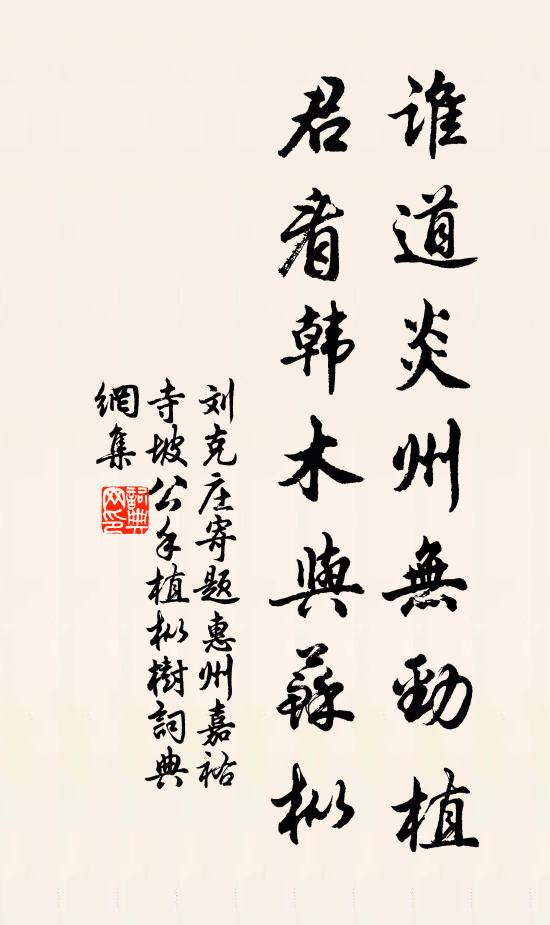 誰道炎州無勁植
君看韩木與蘇樅
刘克庄寄题惠州嘉祐
寺坡公手植樅樹詞典
網集
詞典
网印